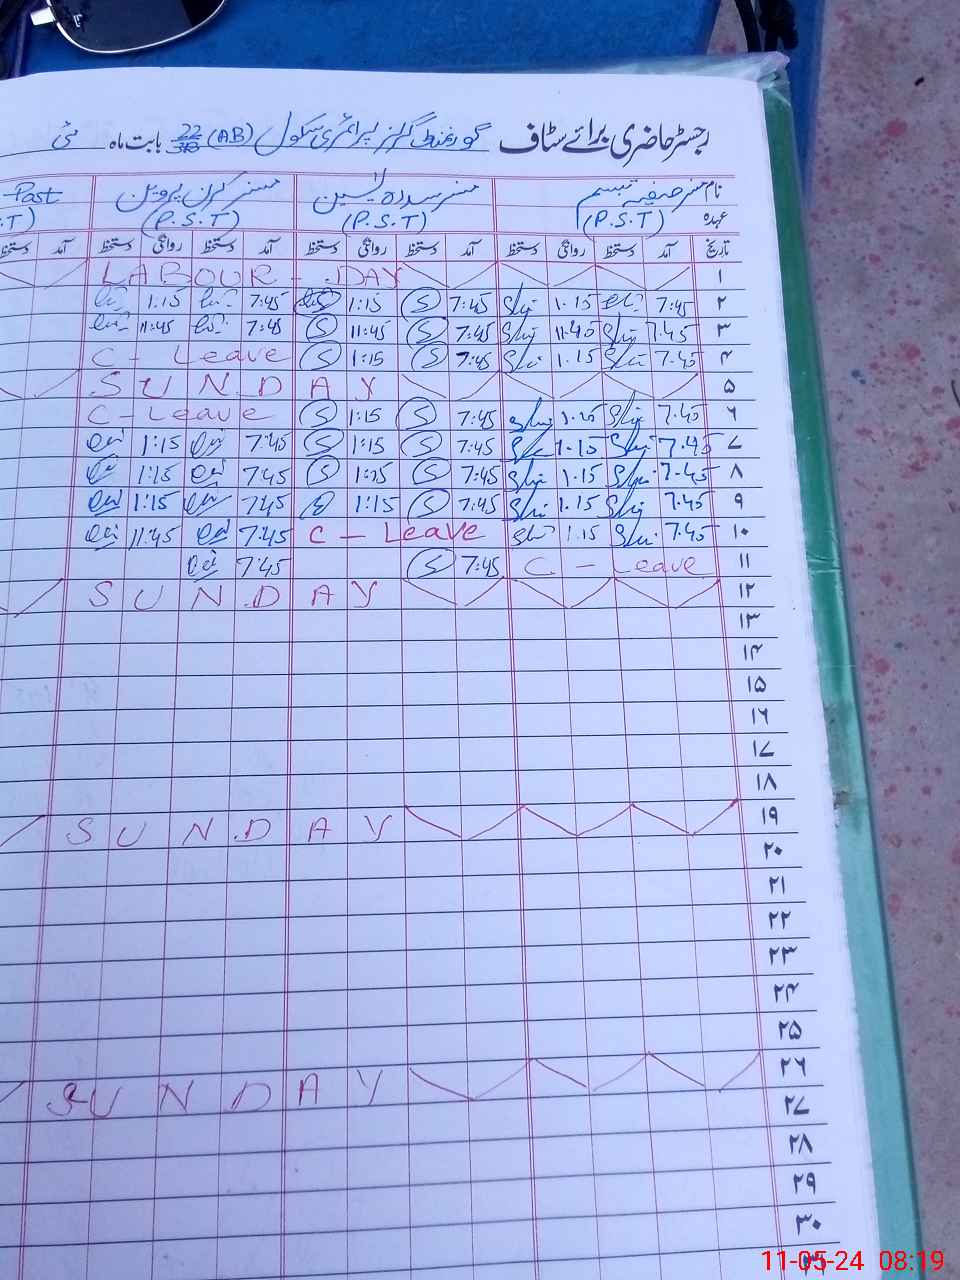 رجسٹر حاضری برائے سٹاف گورنمنٹ گرلز پرائمری سکول (AB) 22 بابت ماہ مئی
نام مسز صفیہ تبسم مسز سدرہ یٰسین مسز کرن پروین Post
عہدہ (P.S.T) (P.S.T) (P.S.T) .T)
تاریخ آمد دستخط روانگی دستخط آمد دستخط روانگی دستخط آمد دستخط روانگی دستخط آمد دستخط
۱ LABOUR - DAY
۲ 7:45 1.15 7:45 S 1:15 7:45 1:15
۳ 7.45 11.45 7:45 S 11:45 S 7:45 11:45
۴ 7.45 1.15 7:45 S 1:15 S C - Leave
۵ SUNDAY
۶ 7.45 1.15 7:45 S 1:15 S C - Leave
۷ 7.45 1.15 7:45 S 1:15 S 7:45 1:15
۸ 7.45 1.15 7:45 S 1:15 S 7:45 1:15
۹ 7.45 1.15 7:45 S 1:15 7:45 1:15
۱۰ 7.45 1.15 C - Leave 7:45 11:45
۱۱ C - Leave 7:45 S 7:45
۱۲ SUNDAY
۱۳
۱۴
۱۵
۱۶
۱۷
۱۸
۱۹ SUNDAY
۲۰
۲۱
۲۲
۲۳
۲۴
۲۵
۲۶ SUNDAY
۲۷
۲۸
۲۹
۳۰
۳۱
11-05-24 08:19